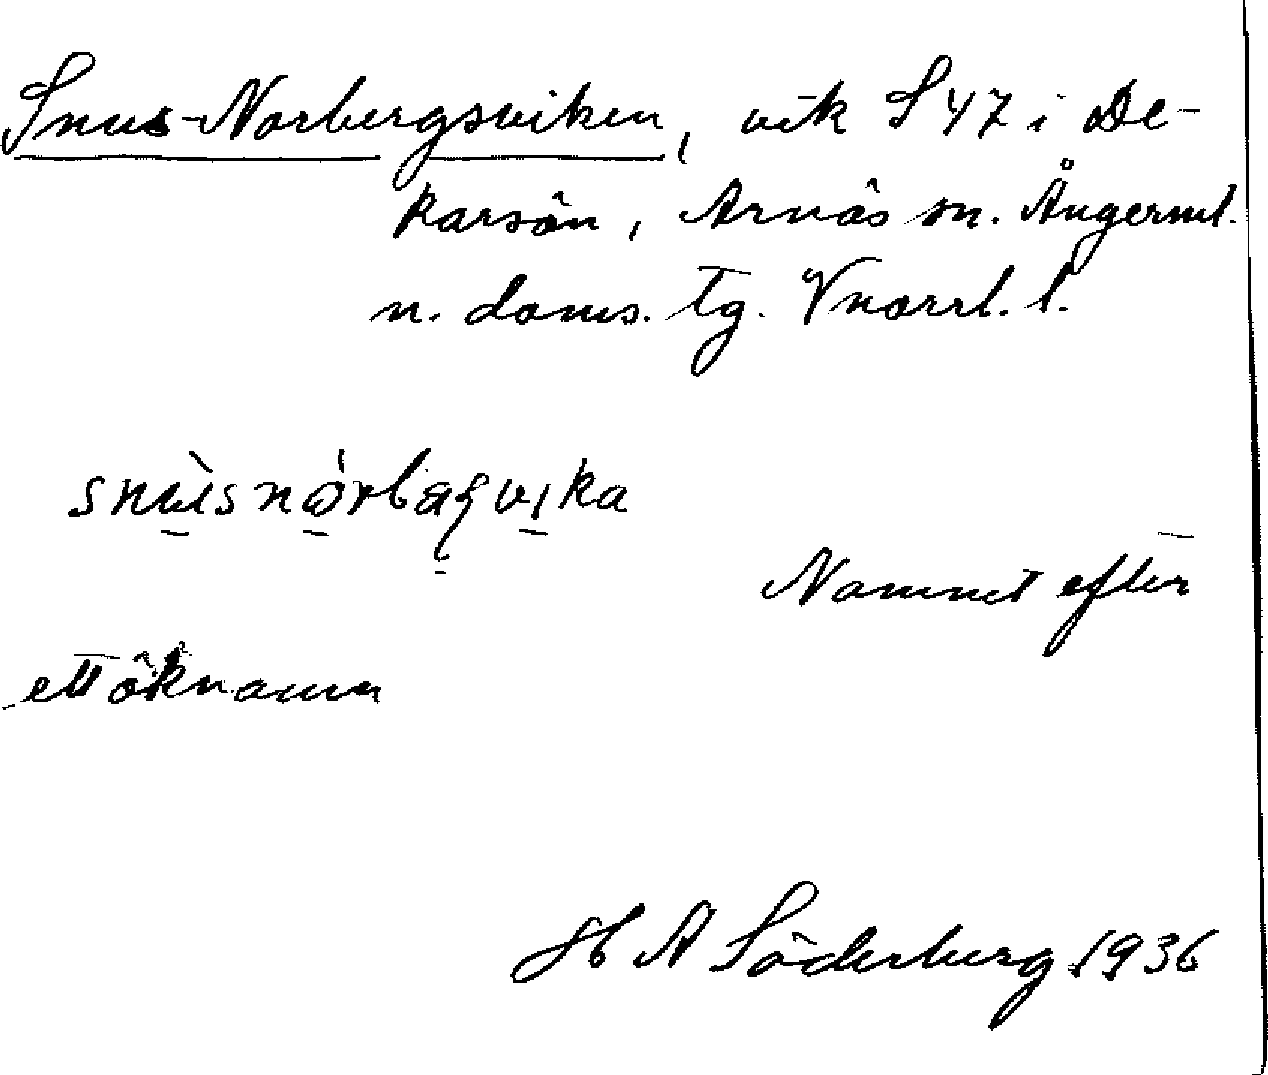 Snus-Norbergsviken, vik S 47 i De-
karsön, Arnäs sn. Ångerml.
n. doms. tg. Vnorrl. l.
snùsnórbæʂvika
Namnet efter
ett öknamn
H A Söderberg 1936